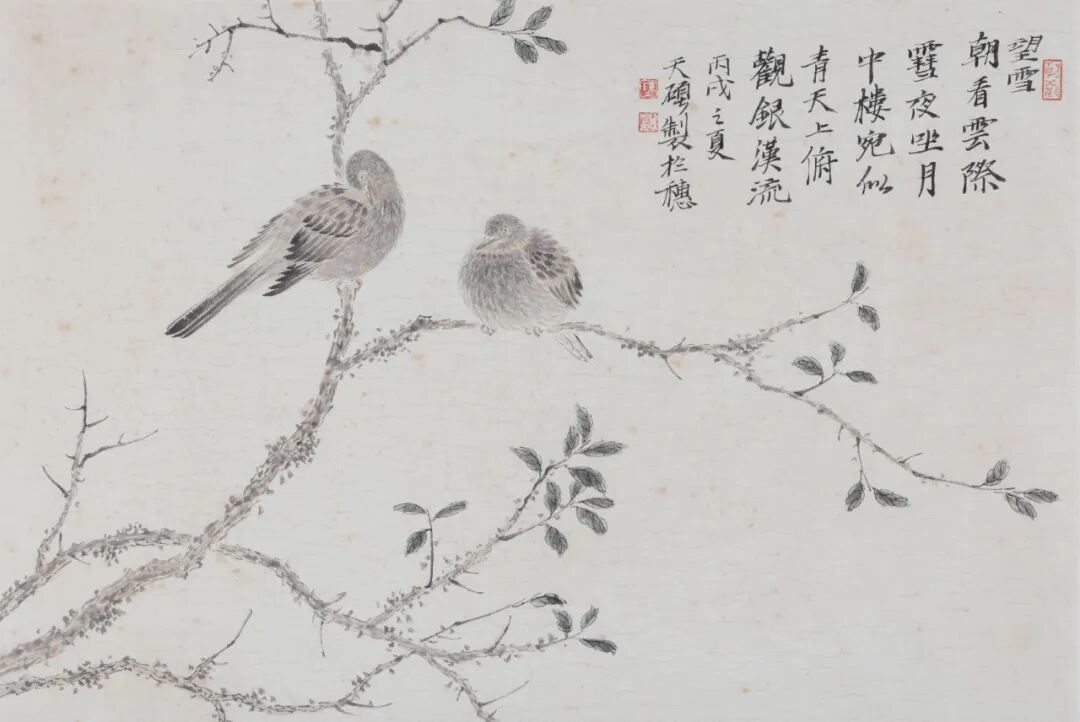 望雪
朝看雲際
雪夜坐月
中樓宛似
青天上俯
觀銀漢流
丙戌之夏
天碩製於穗